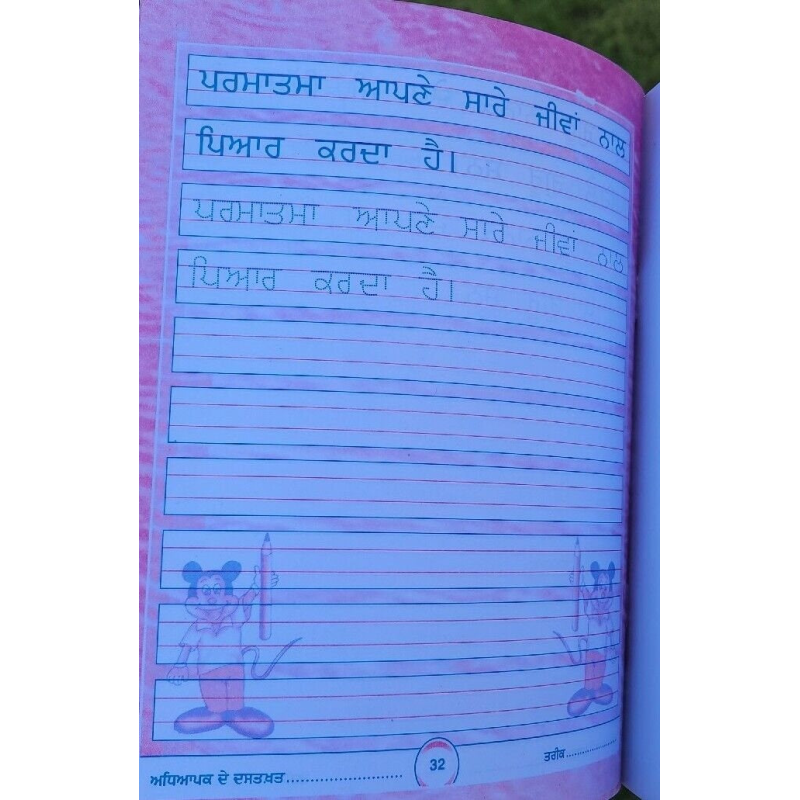 ਪਰਮਾਤਮਾ ਆਪਣੇ ਸਾਰੇ ਜੀਵਾਂ ਨਾਲ
ਪਿਆਰ ਕਰਦਾ ਹੈ।
ਪਰਮਾਤਮਾ ਆਪਣੇ ਸਾਰੇ ਜੀਵਾਂ ਨਾਲ
ਪਿਆਰ ਕਰਦਾ ਹੈ।
ਅਧਿਆਪਕ ਦੇ ਦਸਤਖ਼ਤ.......................... 32 ਤਰੀਕ................